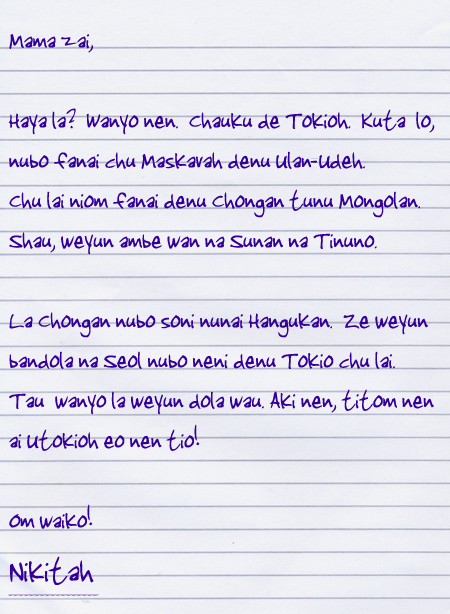 Mama zai,
Haya la? Wanyo nen. Chauku de Tokioh. Kuta lo,
nubo fanai chu Maskavah denu Ulan-Udeh.
Chu lai niom fanai denu Chongan tunu Mongolan.
Shau, weyun ambe wan na Sunan na Tinuno.
La Chongan nubo soni nunai Hangukan. Ze weyun
bandola na Seol nubo neni denu Tokio chu lai.
Tau wanyo la weyun dola wau. Aki nen, titom nen
ai Utokioh eo nen tio!
Om waiko!
Nikitah